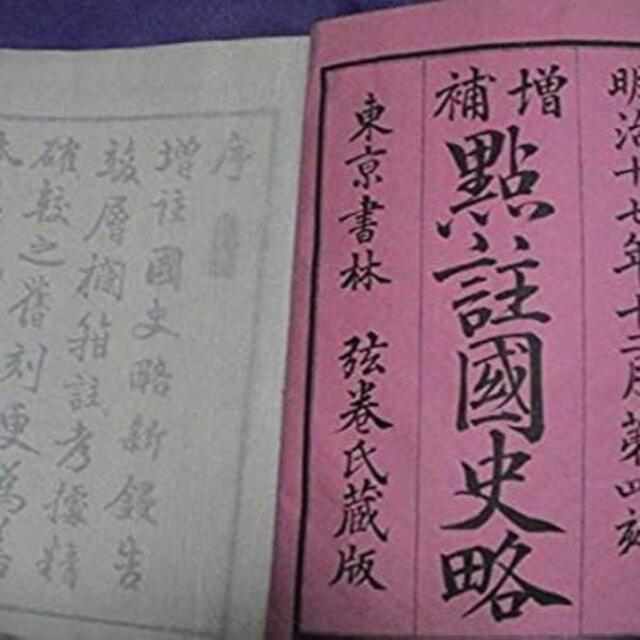 明治十七年十二月第四刻
增補
點註國史略
東京書林 弦卷氏藏版
序
增註國史略新鋟告
竣層欄註考據精
確較之舊刻更為